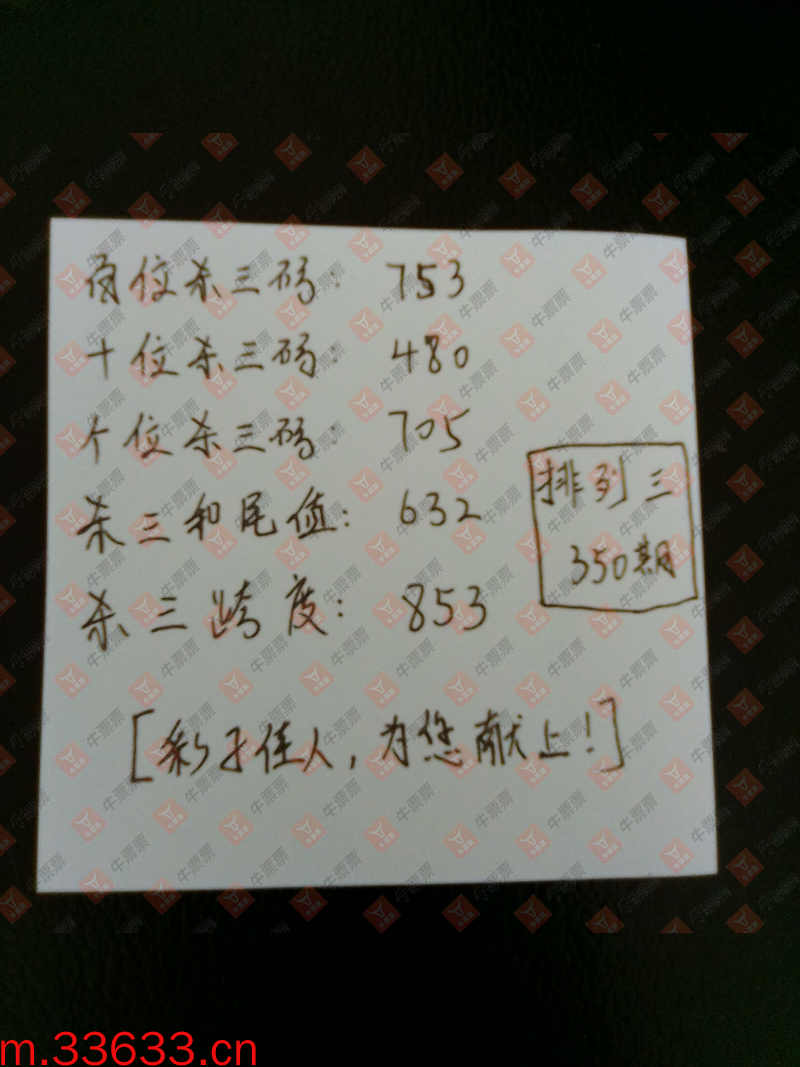 百位杀三码: 753
十位杀三码: 480
个位杀三码: 705
杀三和尾值: 632
杀三跨度: 853
排列三
350期
[彩子佳人,为您献上!]
牛票票
m.33633.cn